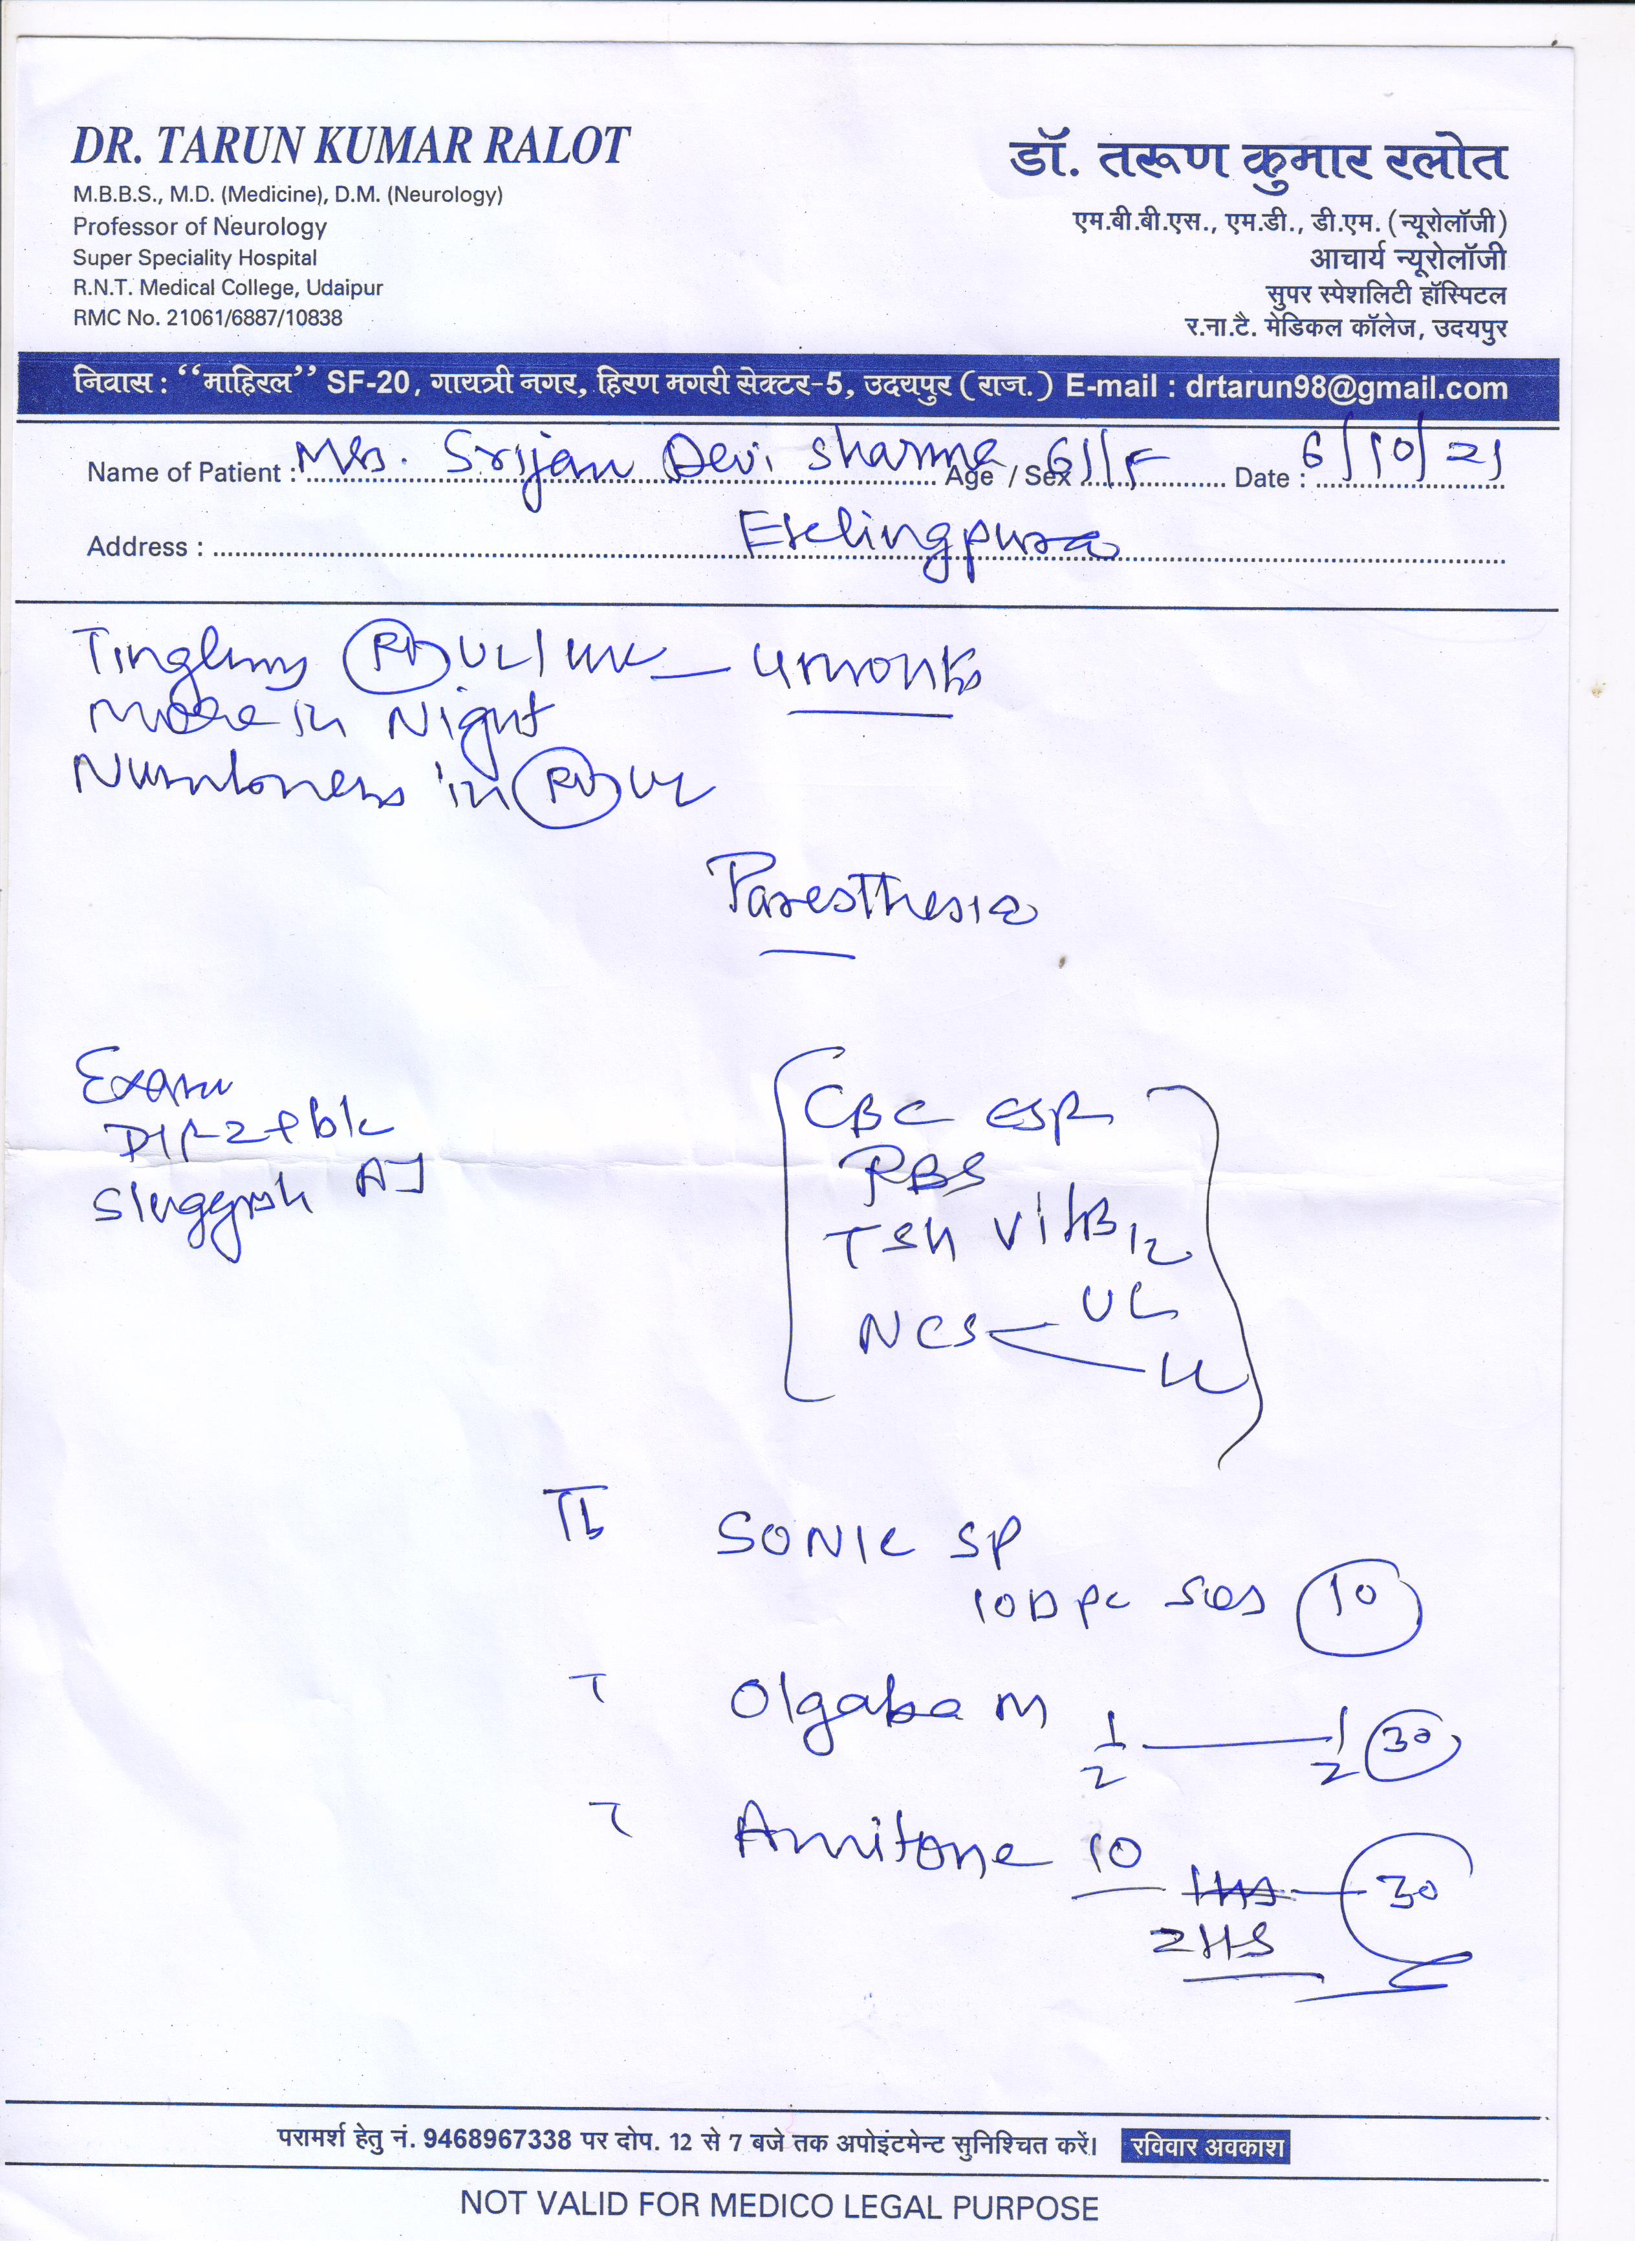 DR. TARUN KUMAR RALOT
M.B.B.S., M.D. (Medicine), D.M. (Neurology)
Professor of Neurology
Super Speciality Hospital
R.N.T. Medical College, Udaipur
RMC No. 21061/6887/10838
डॉ. तरूण कुमार रलोत
एम.बी.बी.एस., एम.डी., डी.एम. (न्यूरोलॉजी)
आचार्य न्यूरोलॉजी
सुपर स्पेशलिटी हॉस्पिटल
र.ना.टै. मेडिकल कॉलेज, उदयपुर
निवास : “माहिरल” SF-20, गायत्री नगर, हिरण मगरी सेक्टर-5, उदयपुर (राज.) E-mail : drtarun98@gmail.com
Name of Patient : Mrs. Srijan Devi Sharma Age / Sex 61/F Date : 6/10/21
Address : Eklingpura
Tingling Rt UL/ 4 months
More in Night
Numbness in Rt UL
Paresthesia
Exam
Sluggish AJ
CBC ESR
RBS
TSH Vit B12
NCS UL
LL
SONIC SP
10D pc SOS 10
T Olgaba M 1/2 — 1/2 30
T Amitone 10 1HS 30
2HS
परामर्श हेतु नं. 9468967338 पर दोप. 12 से 7 बजे तक अपोइंटमेन्ट सुनिश्चित करें। रविवार अवकाश
NOT VALID FOR MEDICO LEGAL PURPOSE